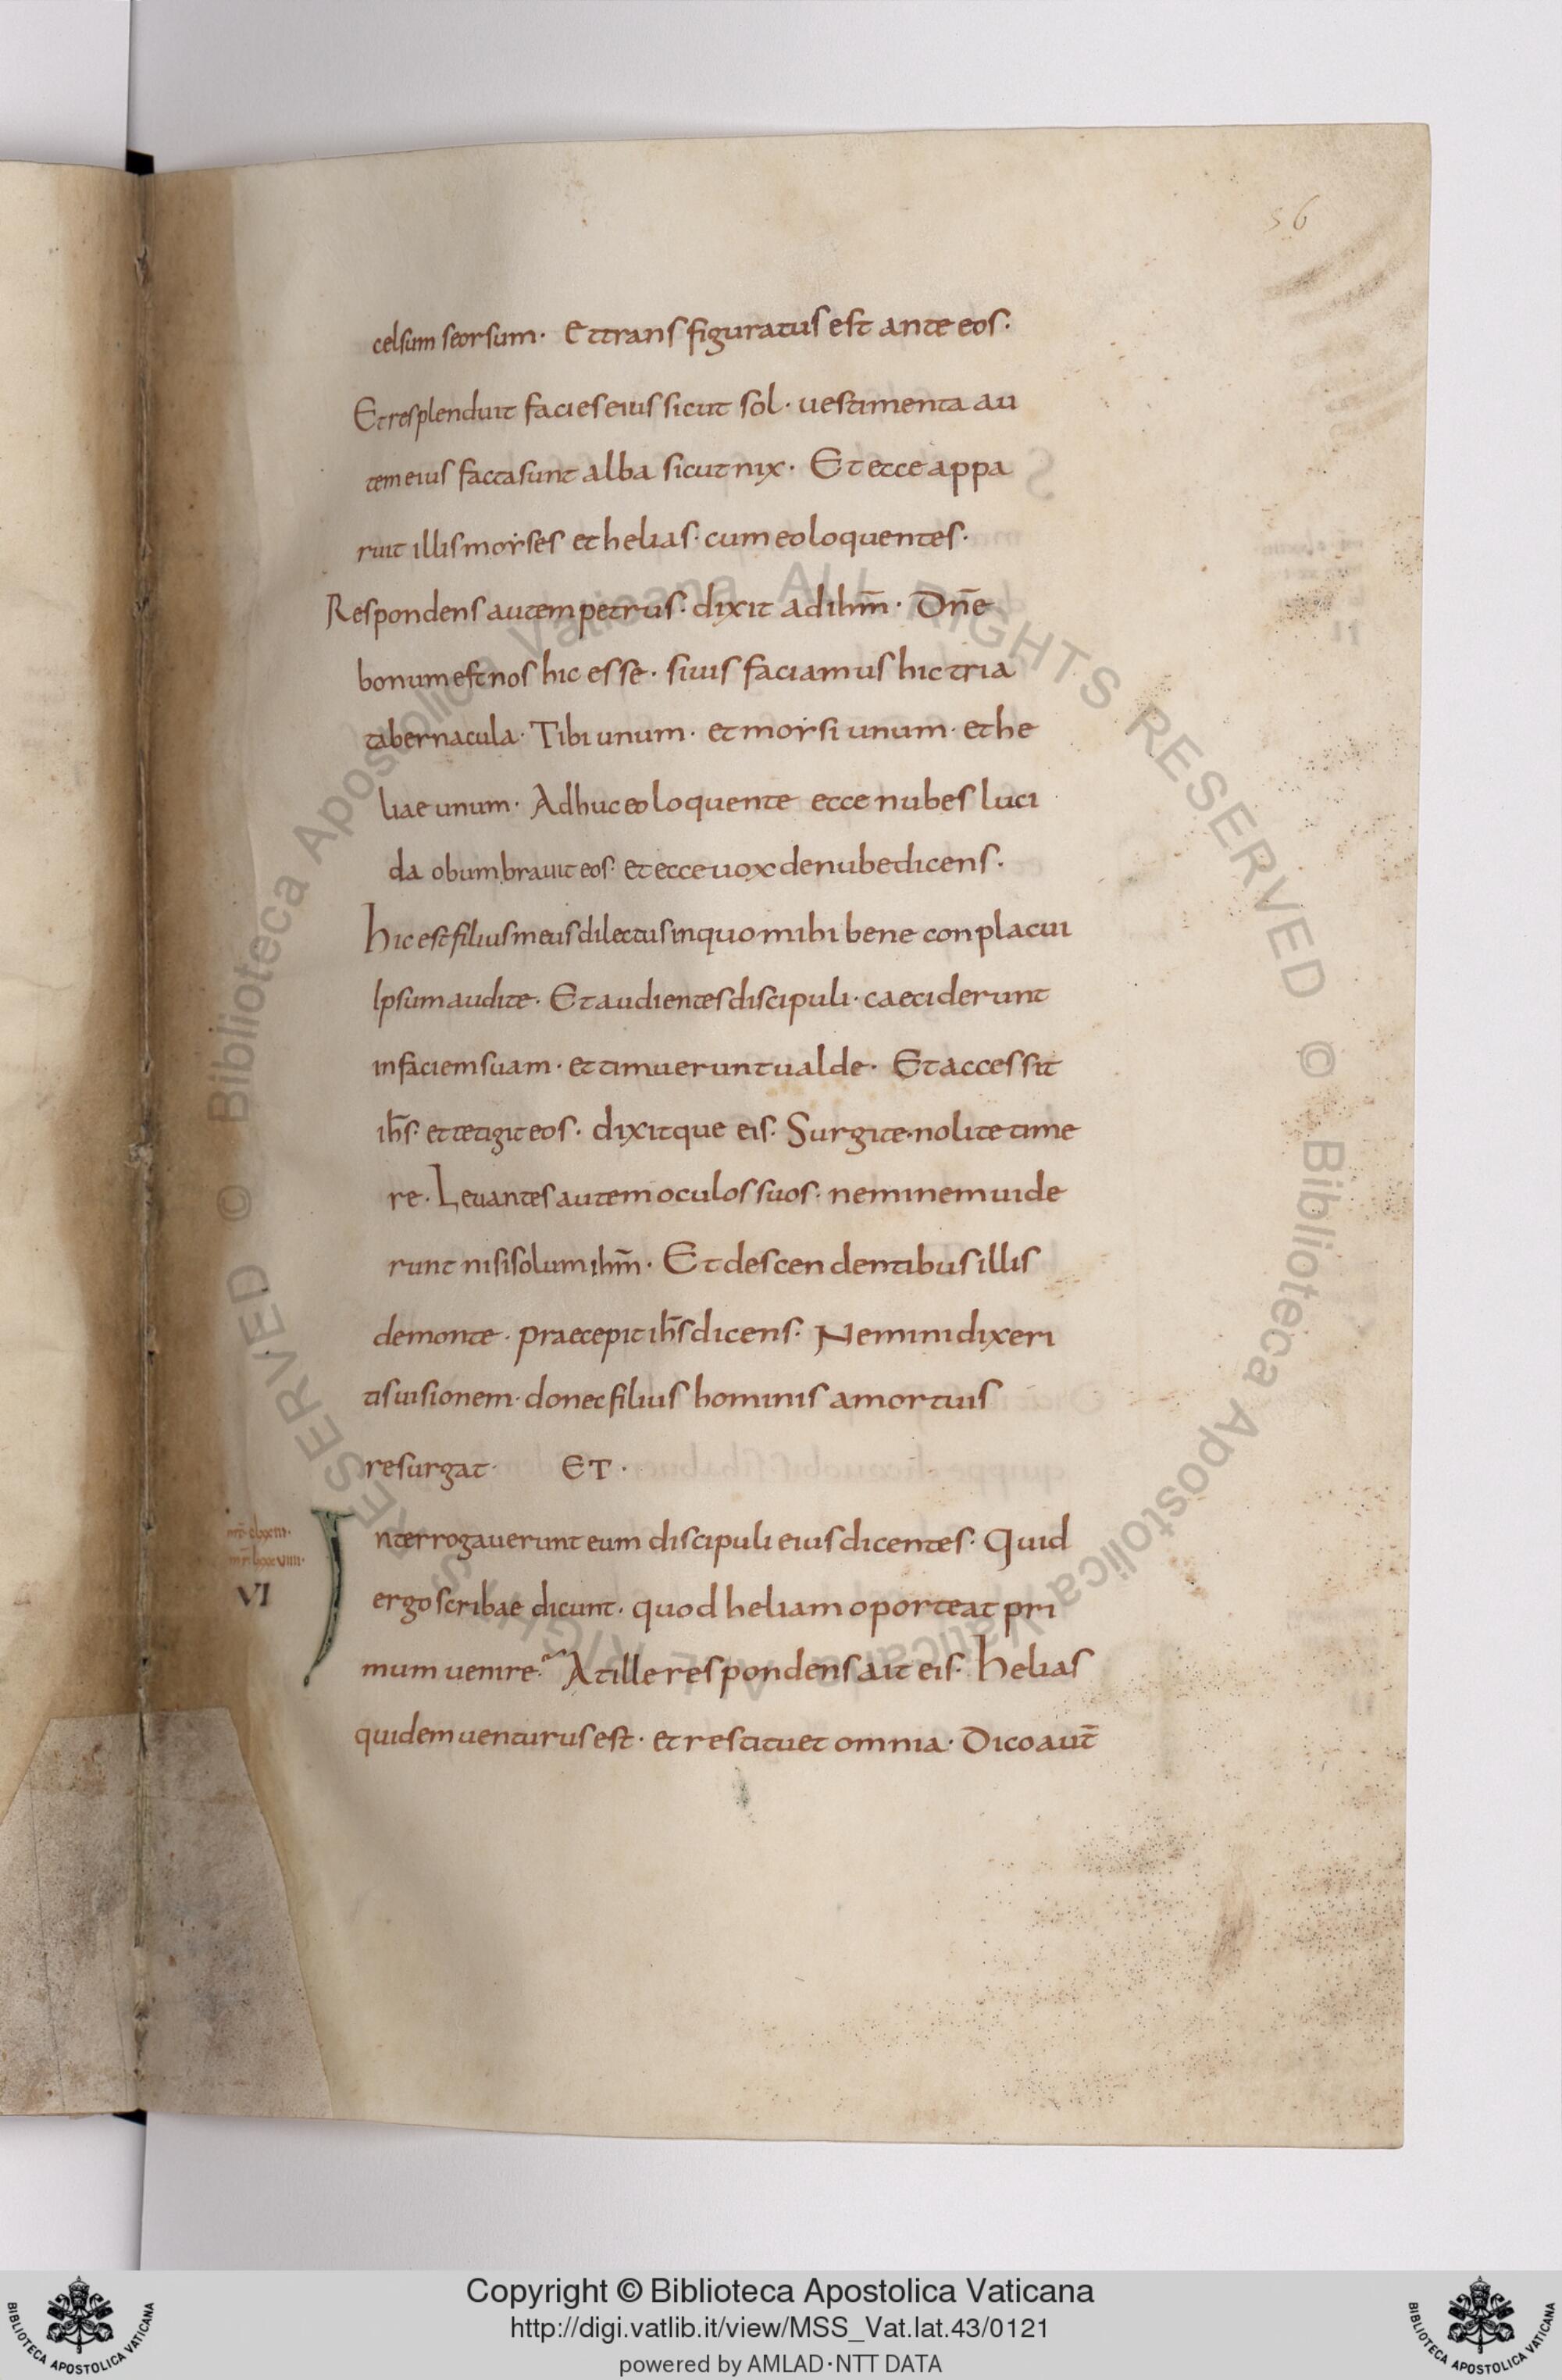 56
celsum seorsum· Et transfiguratus est ante eos·
Et resplenduit facies eius sicut sol· uestimenta au
tem eius facta sunt alba sicut nix· Et ecce appa
ruit illis moyses et helias· cum eo loquentes·
Respondens autem petrus· dixit ad ihm̅· Dn̅e
bonum est nos hic esse· si uis faciamus hic tria
tabernacula· Tibi unum· et moysi unum· et he
liae unum· Adhuc eo loquente ecce nubes luci
da obumbrauit eos· et ecce uox de nube dicens·
hic est filius meus dilectus in quo mihi bene conplacui
Ipsum audite· Et audientes discipuli· caeciderunt
in faciem suam· et timuerunt ualde· Et accessit
ih̅s· et tetigit eos· dixitque eis· Surgite· nolite time
re· Leuantes autem oculos suos· neminem uide
runt nisi solum ihm̅· Et descendentibus illis
de monte· praecepit ih̅s dicens· Nemini dixeri
tis uisionem· donec filius hominis a mortuis
resurgat· ET·
Interrogauerunt eum discipuli eius dicentes· Quid
VI
ergo scribae dicunt· quod heliam oporteat pri
mum uenire· At ille respondens ait eis· helias
quidem uenturus est· et restituet omnia· Dico aut̅
© Biblioteca Apostolica Vaticana ALL RIGHTS RESERVED © Biblioteca Apostolica Vaticana ALL RIGHTS RESERVED
Copyright © Biblioteca Apostolica Vaticana
http://digi.vatlib.it/view/MSS_Vat.lat.43/0121
powered by AMLAD·NTT DATA
BIBLIOTECA APOSTOLICA VATICANA
BIBLIOTECA APOSTOLICA VATICANA